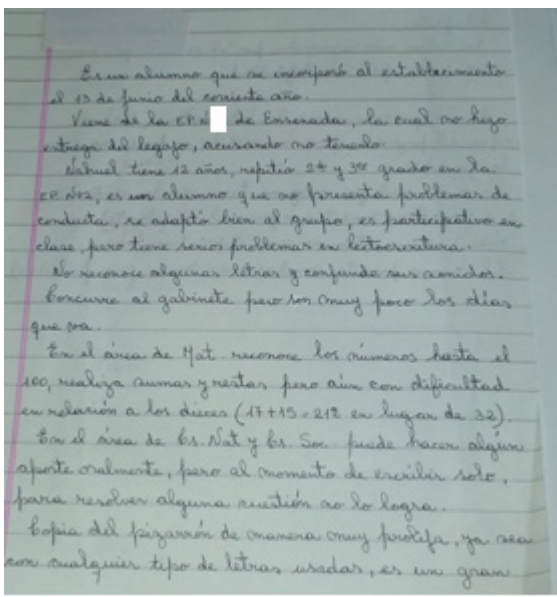 Es un alumno que se incorporó al establecimiento
el 13 de junio del corriente año.
Viene de la EP.N de Ensenada, la cual no hizo
entrega del legajo, acusando no tenerlo.
Nahuel tiene 12 años, repitió 2do y 3er grado en la
EP. Nº2, es un alumno que no presenta problemas de
conducta, se adaptó bien al grupo, es participativo en
clase, pero tiene serios problemas en lectoescritura.
No reconoce algunas letras y confunde sus sonidos.
Concurre al gabinete pero son muy poco los días
que va.
En el área de Mat reconoce los números hasta el
100, realiza sumas y restas pero aún con dificultad
en relación a los dieces (17+15=212 en lugar de 32).
En el área de Cs. Nat y Cs. Soc puede hacer algún
aporte oralmente, pero al momento de escribir solo,
para resolver alguna cuestión no lo logra.
Copia del pizarrón de manera muy prolija, ya sea
con cualquier tipo de letras usadas, es un gran